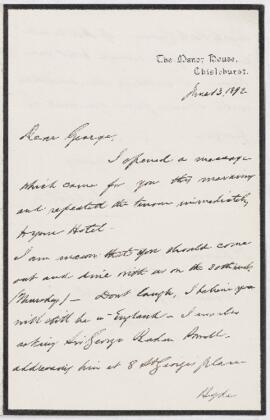 The Manor House,
Chislehurst.
June 13. 1892
Dear George,
I opened a message
which came for you this morning
and repeated the tenour immediately
to your Hotel.
I am anxious that you should come
out and dine with us on the 30th inst
(Thursday) — Don't laugh, I believe you
will still be in England — I am also
asking Sir George Baden Powell
addressing him at 8 St Georges place
Hyde